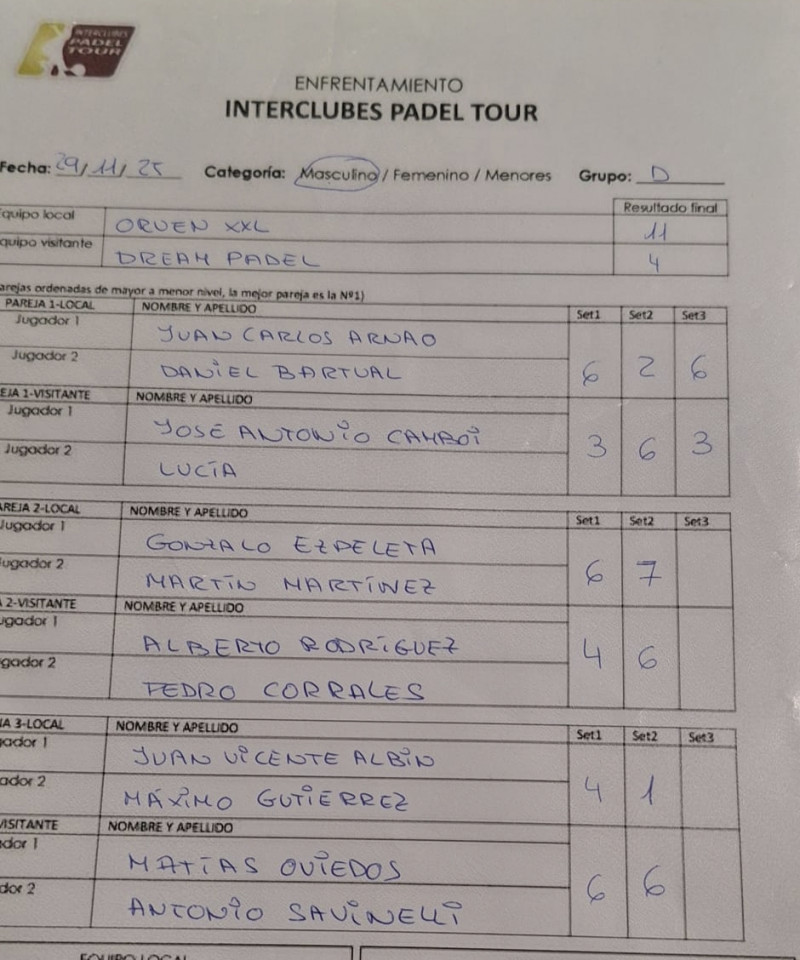 INTERCLUBES
PADEL
TOUR
ENFRENTAMIENTO
INTERCLUBES PADEL TOUR
Fecha: 29/11/25 Categoría: Masculino / Femenino / Menores Grupo: D
quipo local ORUEN XXL Resultado final 11
quipo visitante DREAM PADEL 4
arejas ordenadas de mayor a menor nivel, la mejor pareja es la Nº1)
PAREJA 1-LOCAL NOMBRE Y APELLIDO Set1 Set2 Set3
Jugador 1 JUAN CARLOS ARNAO
Jugador 2 DANIEL BARTUAL 6 2 6
EJA 1-VISITANTE NOMBRE Y APELLIDO
Jugador 1 JOSE ANTONIO CAMBOI
Jugador 2 LUCÍA 3 6 3
AREJA 2-LOCAL NOMBRE Y APELLIDO Set1 Set2 Set3
Jugador 1 GONZALO EZPELETA
ugador 2 MARTÍN MARTÍNEZ 6 7
A 2-VISITANTE NOMBRE Y APELLIDO
ugador 1 ALBERTO RODRÍGUEZ
gador 2 PEDRO CORRALES 4 6
JA 3-LOCAL NOMBRE Y APELLIDO Set1 Set2 Set3
gador 1 JUAN VICENTE ALBIN
ador 2 MÁXIMO GUTIERREZ 4 1
VISITANTE NOMBRE Y APELLIDO
dor 1 MATÍAS OVIEDOS
dor 2 ANTONIO SAVINELLI 6 6
EQUIPO LOCAL